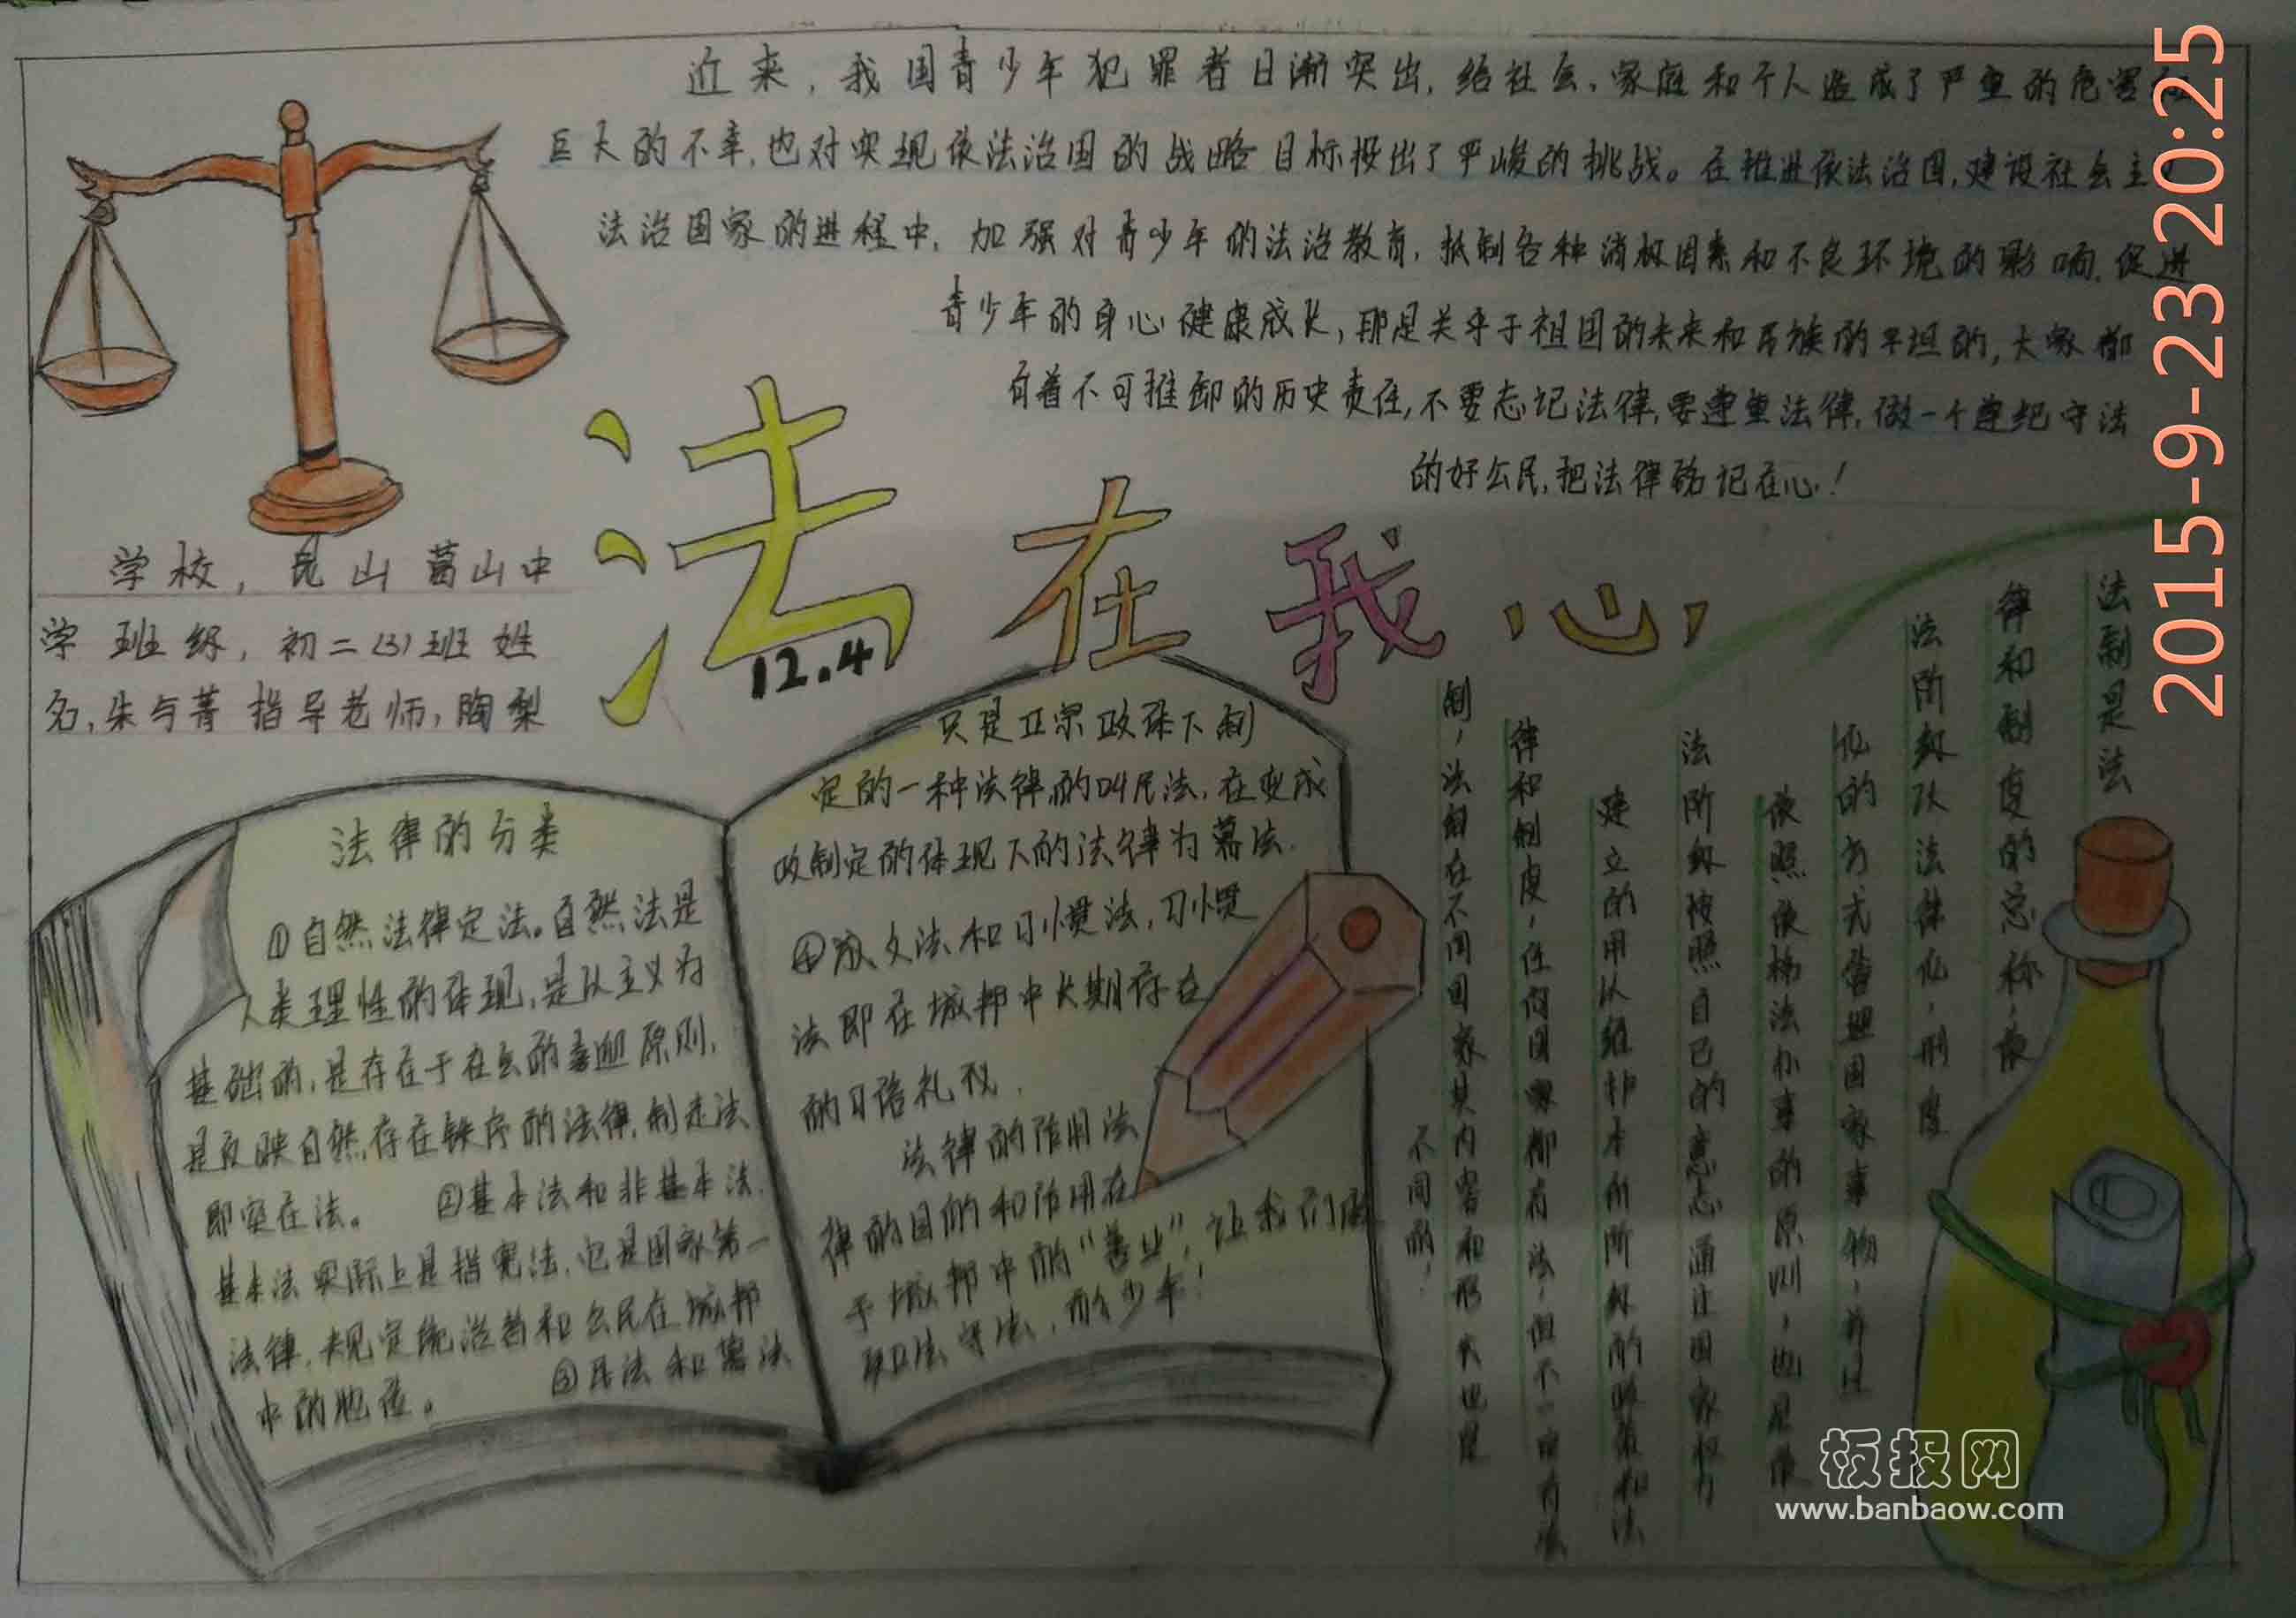 近来，我国青少年犯罪者日渐突出，给社会、家庭和个人造成了严重的危害和
巨大的不幸，也对实现依法治国的战略目标提出了严峻的挑战。在推进依法治国，建设社会主义
法治国家的进程中，加强对青少年的法治教育，抵制各种消极因素和不良环境的影响，促进
青少年的身心健康成长，那是关乎于祖国的未来和民族的 的，大家都
有着不可推卸的历史责任，不要忘记法律，要遵重法律，做一个遵纪守法
的好公民，把法律铭记在心！
法在我心
12.4
学校，昆山葛山中
学 班级，初二(3)班 姓
名，朱与菁 指导老师，陶梨
法律的分类
①自然法律定法。自然法是
人类理性的体现，是以主义为
基础的，是存在于社会的 原则，
是反映自然，存在秩序的法律，制定法
即实在法。 ②基本法和非基本法，
基本法实际上是指宪法，也是国家第一
法律，规定统治者和公民在城邦
中的地位。 ③民法和 法
只是正宗政体下制
定的一种法律的叫民法，在变成
政制定的体现下的法律为 法.
④成文法和习惯法，习惯
法即在城邦中长期存在
的习俗礼仪.
法律的作用法
律的目的和作用在
于城邦中的“善业”，让我们做
知法 守法，的少年！
法制是法
律和制度的总称，使
法阶级以法律化，制度
化的方式管理国家事物，并且
依照依据法办事的原则，也是依
法阶级按照自己的意志通过国家权力
建立的用以维护本所阶级的 法
律和制度，任何国家都有法，但不一 有法
制，法制在不同国家其内容和形式也是
不同的！
2015-9-23 20:25
板报网
www.banbaow.com